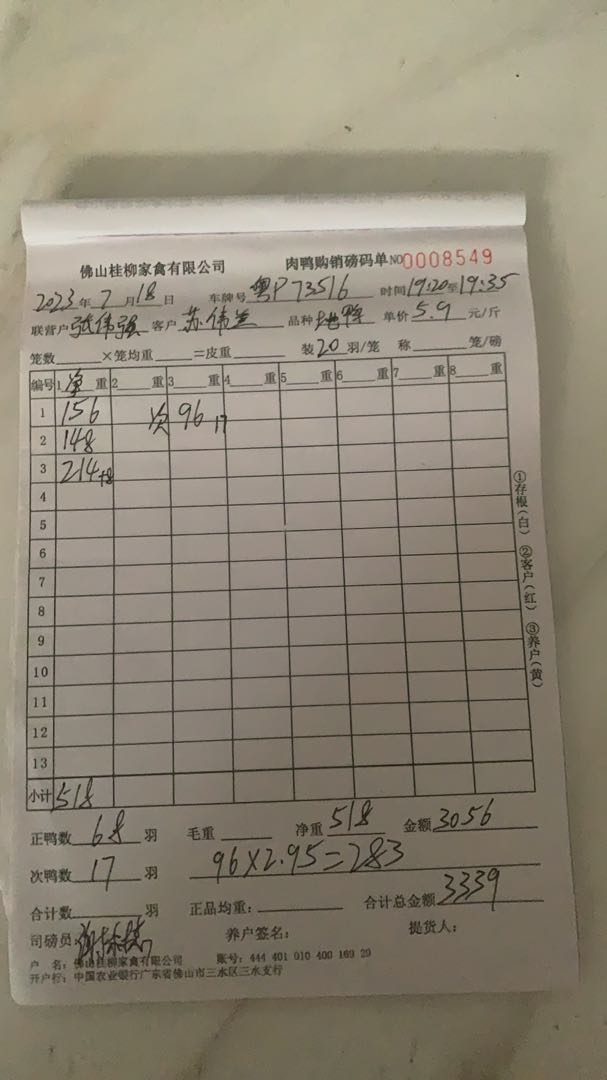 佛山桂柳家禽有限公司 肉鸭购销磅码单 NO 0008549
2023年7月18日 车牌号 粤P73516 时间19:20至19:35
联营户 张伟强 客户 苏伟兰 品种 鸭 单价 5.9 元/斤
笼数 ×笼均重 =皮重 装20羽/笼 称 笼/磅
编号 1 净重 2 重 3 重 4 重 5 重 6 重 7 重 8 重
1 156 次 96 17
2 148
3 214 +8
4
5
6
7
8
9
10
11
12
13
小计 518
正鸭数 68 羽 毛重 净重 518 金额 3056
次鸭数 17 羽 96×2.95=283
合计数 羽 正品均重: 合计总金额 3339
司磅员: 养户签名: 提货人:
户 名: 佛山桂柳家禽有限公司 账号: 444 401 010 400 169 29
开户行: 中国农业银行广东省佛山市三水区三水支行
①存根(白) ②客户(红) ③养户(黄)